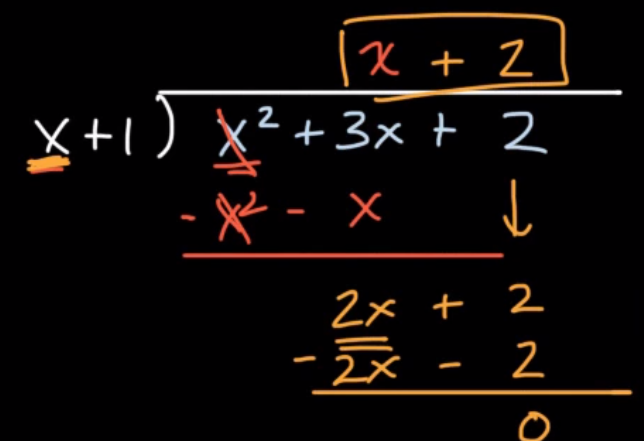 x + 2
x + 1 ) x² + 3x + 2
- x² - x ↓
2x + 2
- 2x - 2
0